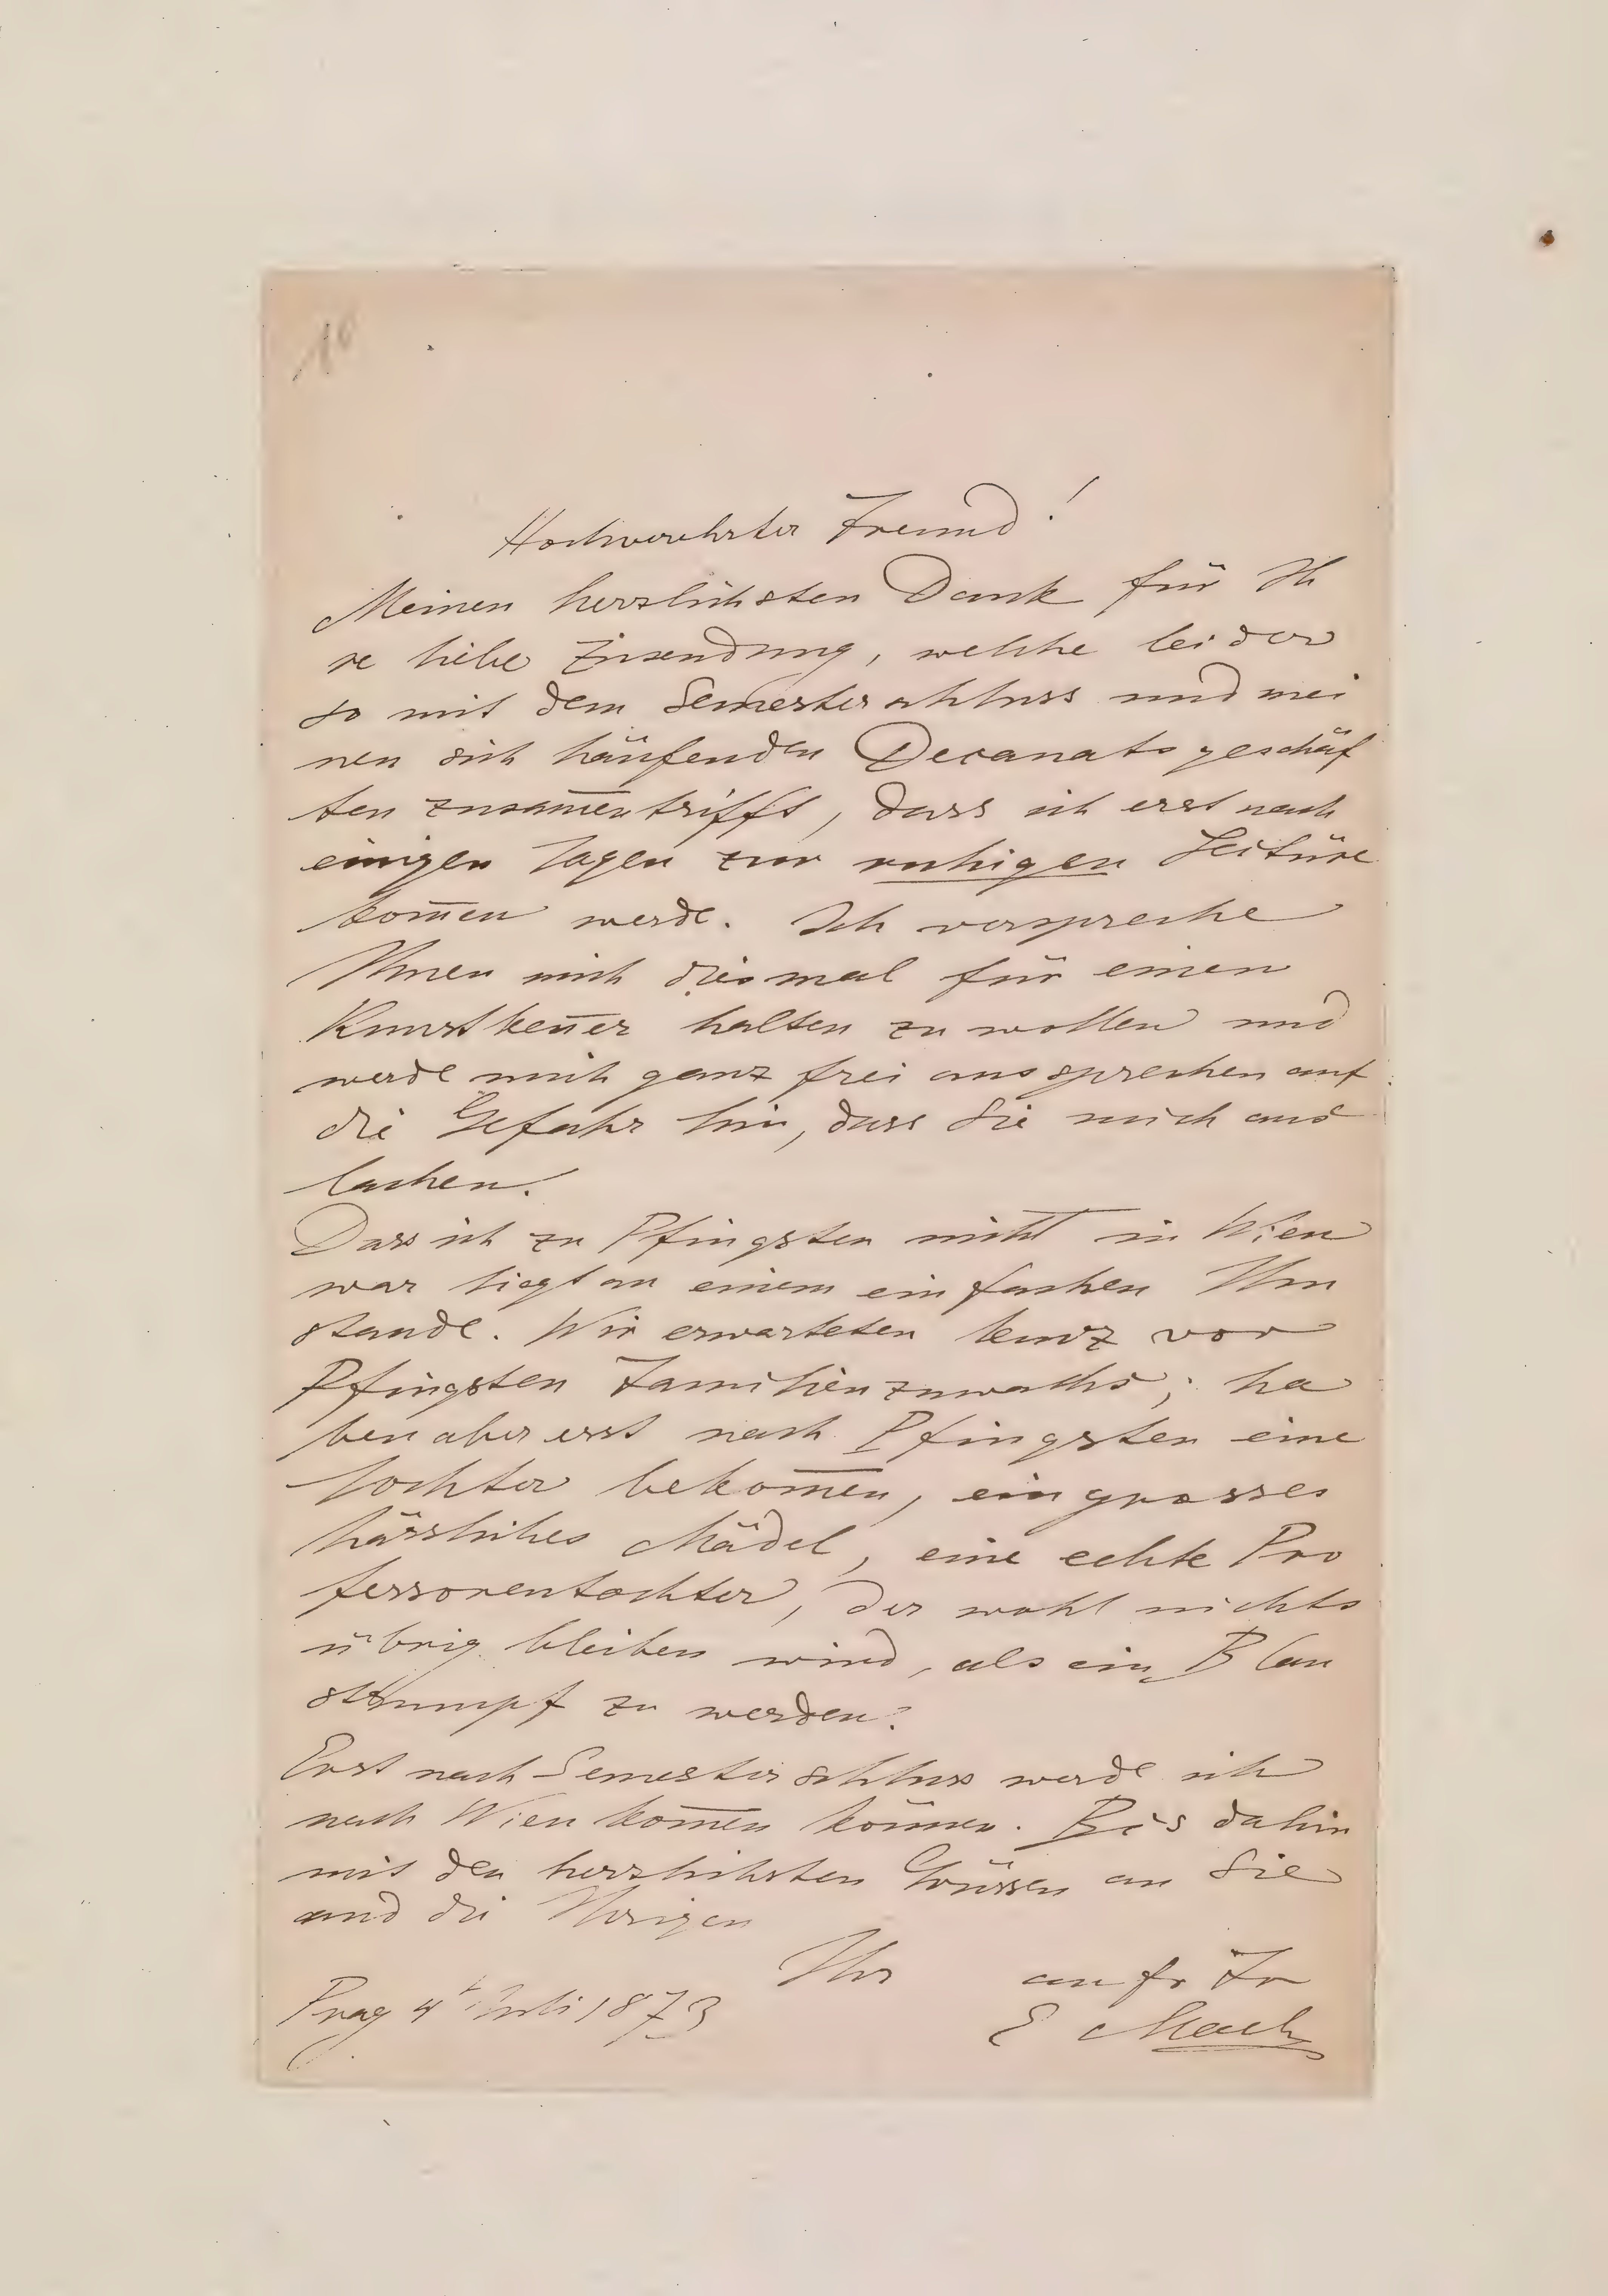 10
Hochverehrter Freund!
Meinen herzlichsten Dank für Ih
re liebe Zusendung, welche leider
so mit dem Semesterschluss und mei
nen sich häufenden Decanatsgeschäf
ten zusam̅entrifft, dass ich erst nach
einigen Tagen zur ruhigen Lectüre
kom̅en werde. Ich verspreche
Ihnen mich diesmal für einen
Kunstken̅er halten zu wollen und
werde mich ganz frei aussprechen auf
die Gefahr hin, dass Sie mich aus
lachen.
Dass ich zu Pfingsten nicht in Wien
war liegt an einem einfachen Um
stande. Wir erwarteten kurz vor
Pfingsten Familienzuwachs; ha
ben aber erst nach Pfingsten eine
Tochter bekom̅en, ein grosses
hässliches Mädel, eine echte Pro
fessorentochter, der wohl nichts
übrig bleiben wird, als ein Blau
strumpf zu werden.
Erst nach Semesterschluss werde ich
nach Wien kom̅en können. Bis dahin
mit den herzlichsten Grüssen an Sie
und die Ihrigen
Ihr aufr Fr
Prag 4t Juli 1873
E Mach